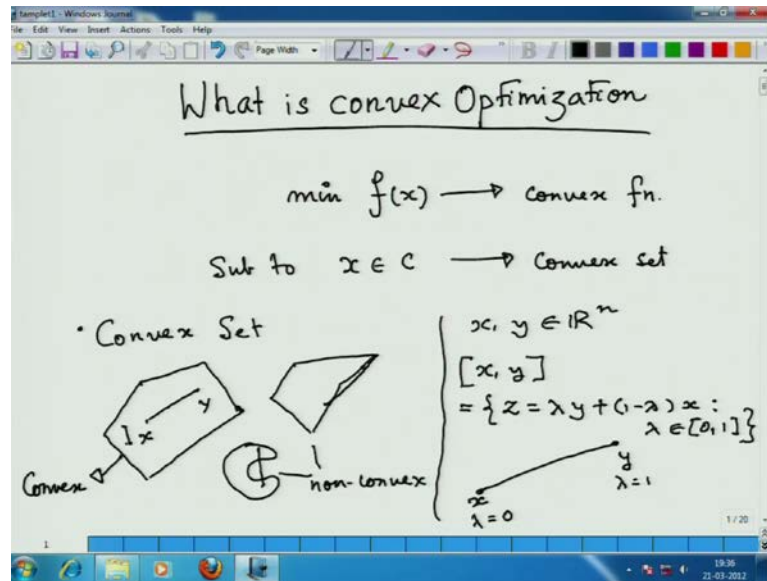 templet1 - Windows Journal
File Edit View Insert Actions Tools Help
Page Width
B I
What is convex Optimization
min f(x) → convex fn.
Sub to x ∈ C → Convex set
· Convex Set
x
y
Convex
non-convex
x, y ∈ ℝⁿ
[x, y]
= { z = λy + (1-λ)x :
λ ∈ [0,1] }
x
λ = 0
y
λ = 1
1 / 20
1
19:36
21-03-2012